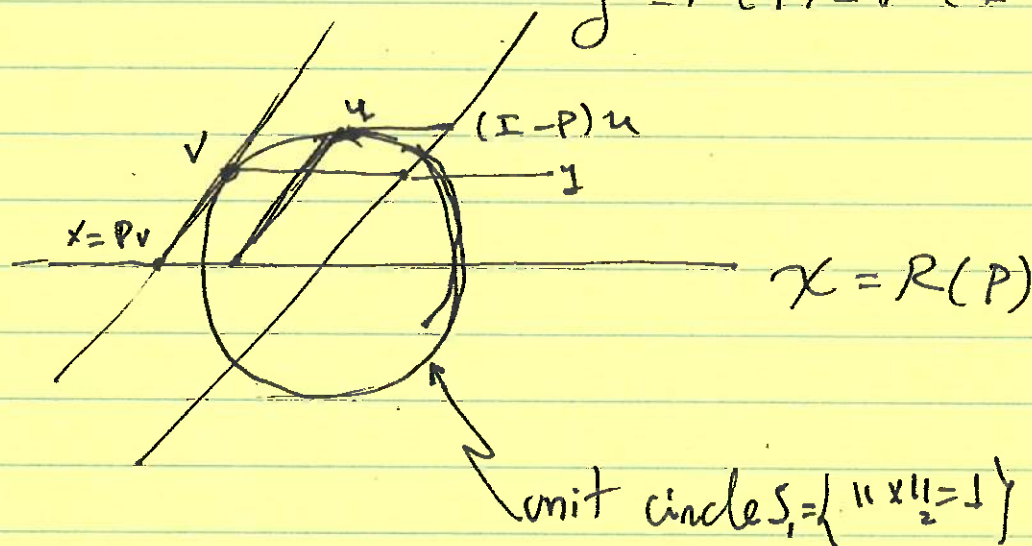 u
(I-P)u
v
y
x=Pv
X = R(P)
unit circle S₁={ ||x||₂=1 }